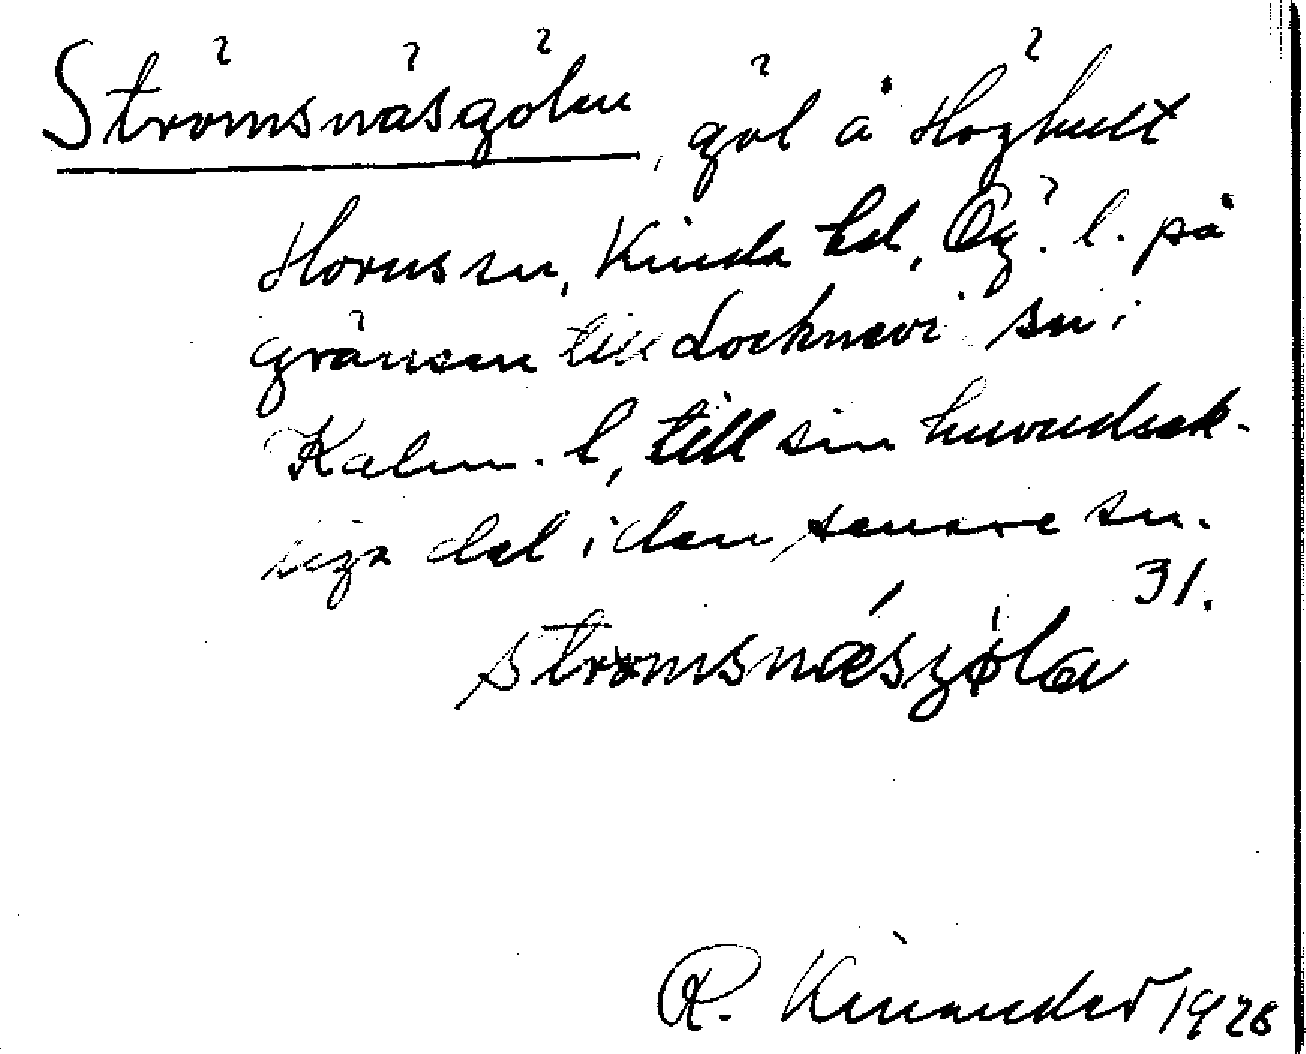 Strömsnäsgölen, göl å Höghult
Horns sn, Kinda hd, Ög. l. på
gränsen till Locknevi sn i
Kalm. l, till sin huvudsak-
liga del i den senare sn.
31.
strömsnǽsgöla
R. Kinander 1928